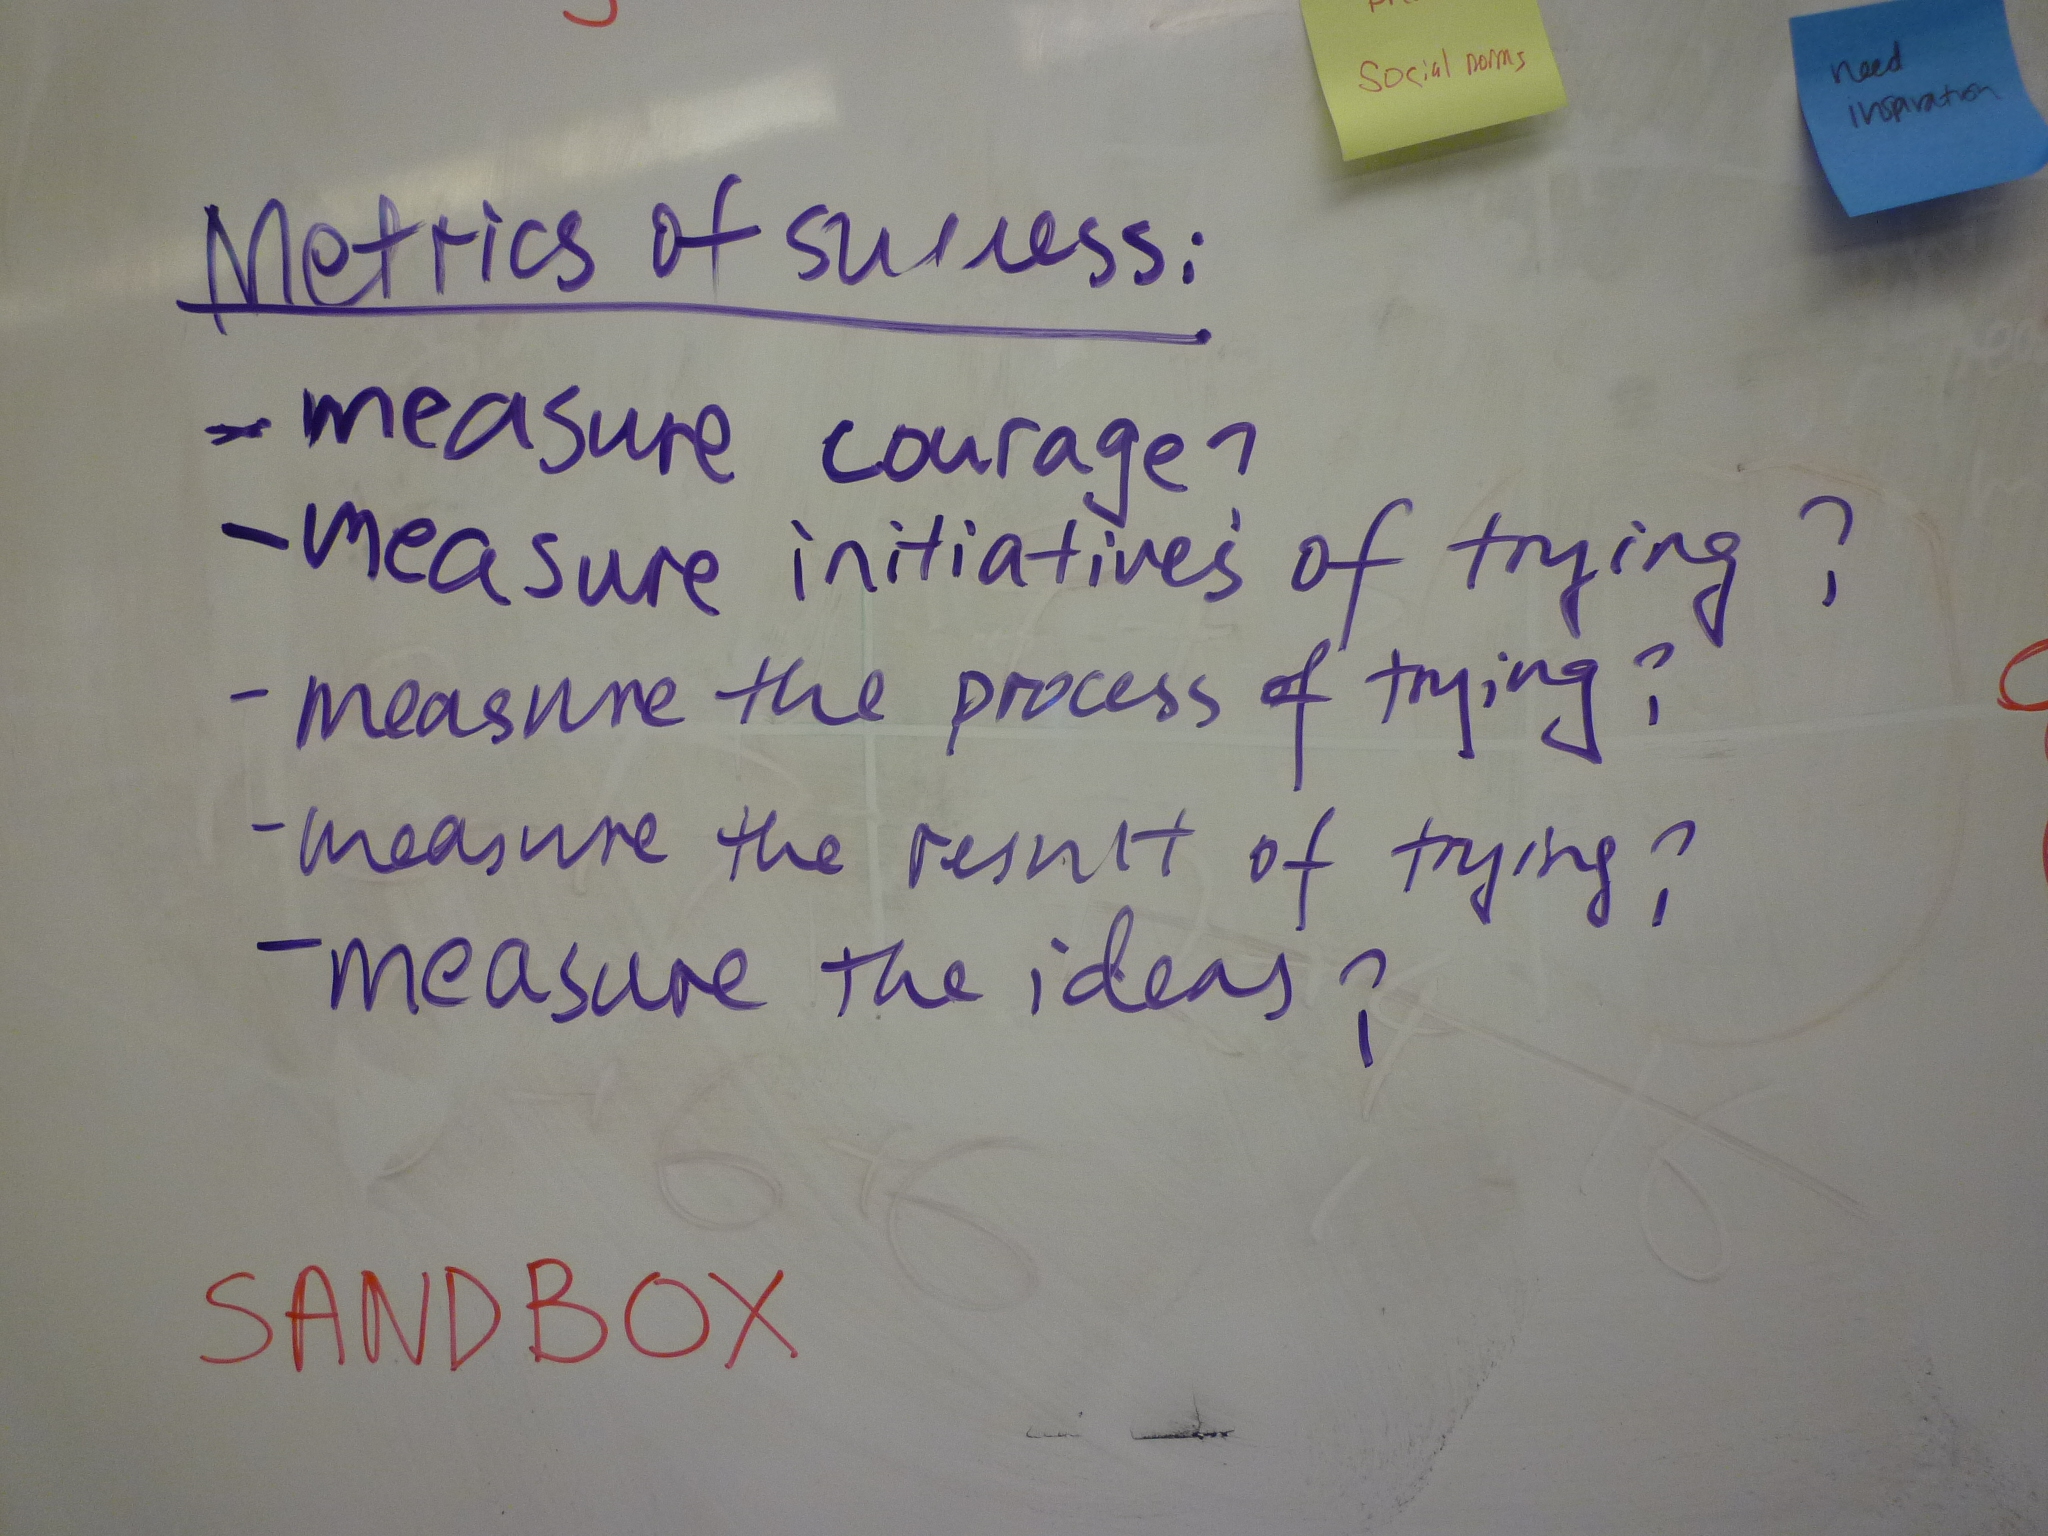 Social norms
need
inspiration
Metrics of success:
- measure courage?
- measure initiatives of trying?
- measure the process of trying?
- measure the result of trying?
- measure the ideas?
SANDBOX